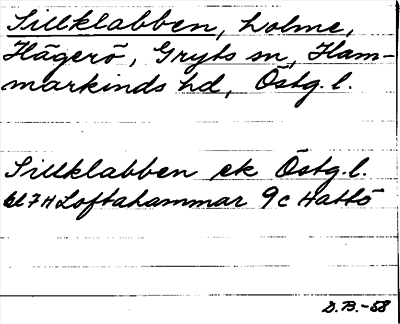 Sillklabben, holme,
Hägerö, Gryts sn, Ham-
markinds hd, Östg. l.
Sillklabben ek Östg. l.
bl 7H Loftahammar 9c Hattö
D.B.-58